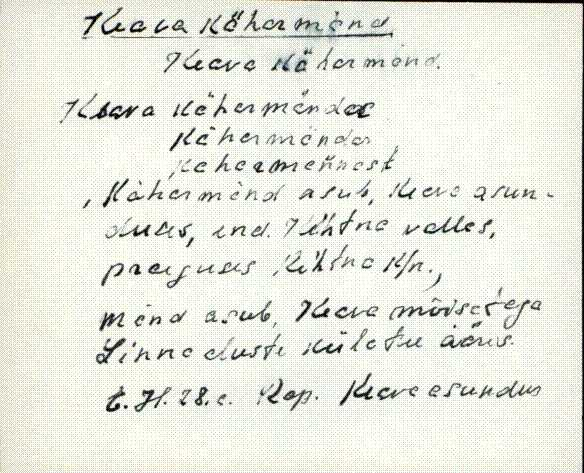 Keava Kähermänd
Keava Kähermänd.
Keava Kähermändae
Kähermändas
Kähermeñnest
, Kähermänd asub, Keava asun-
duses, end. Kehtna vallas,
praeguses Kehtna k/n.,
mänd asub, Keava mõisatega
Linnaaluste külatee ääres.
E. H. 28.a. Rap. Keava asundus